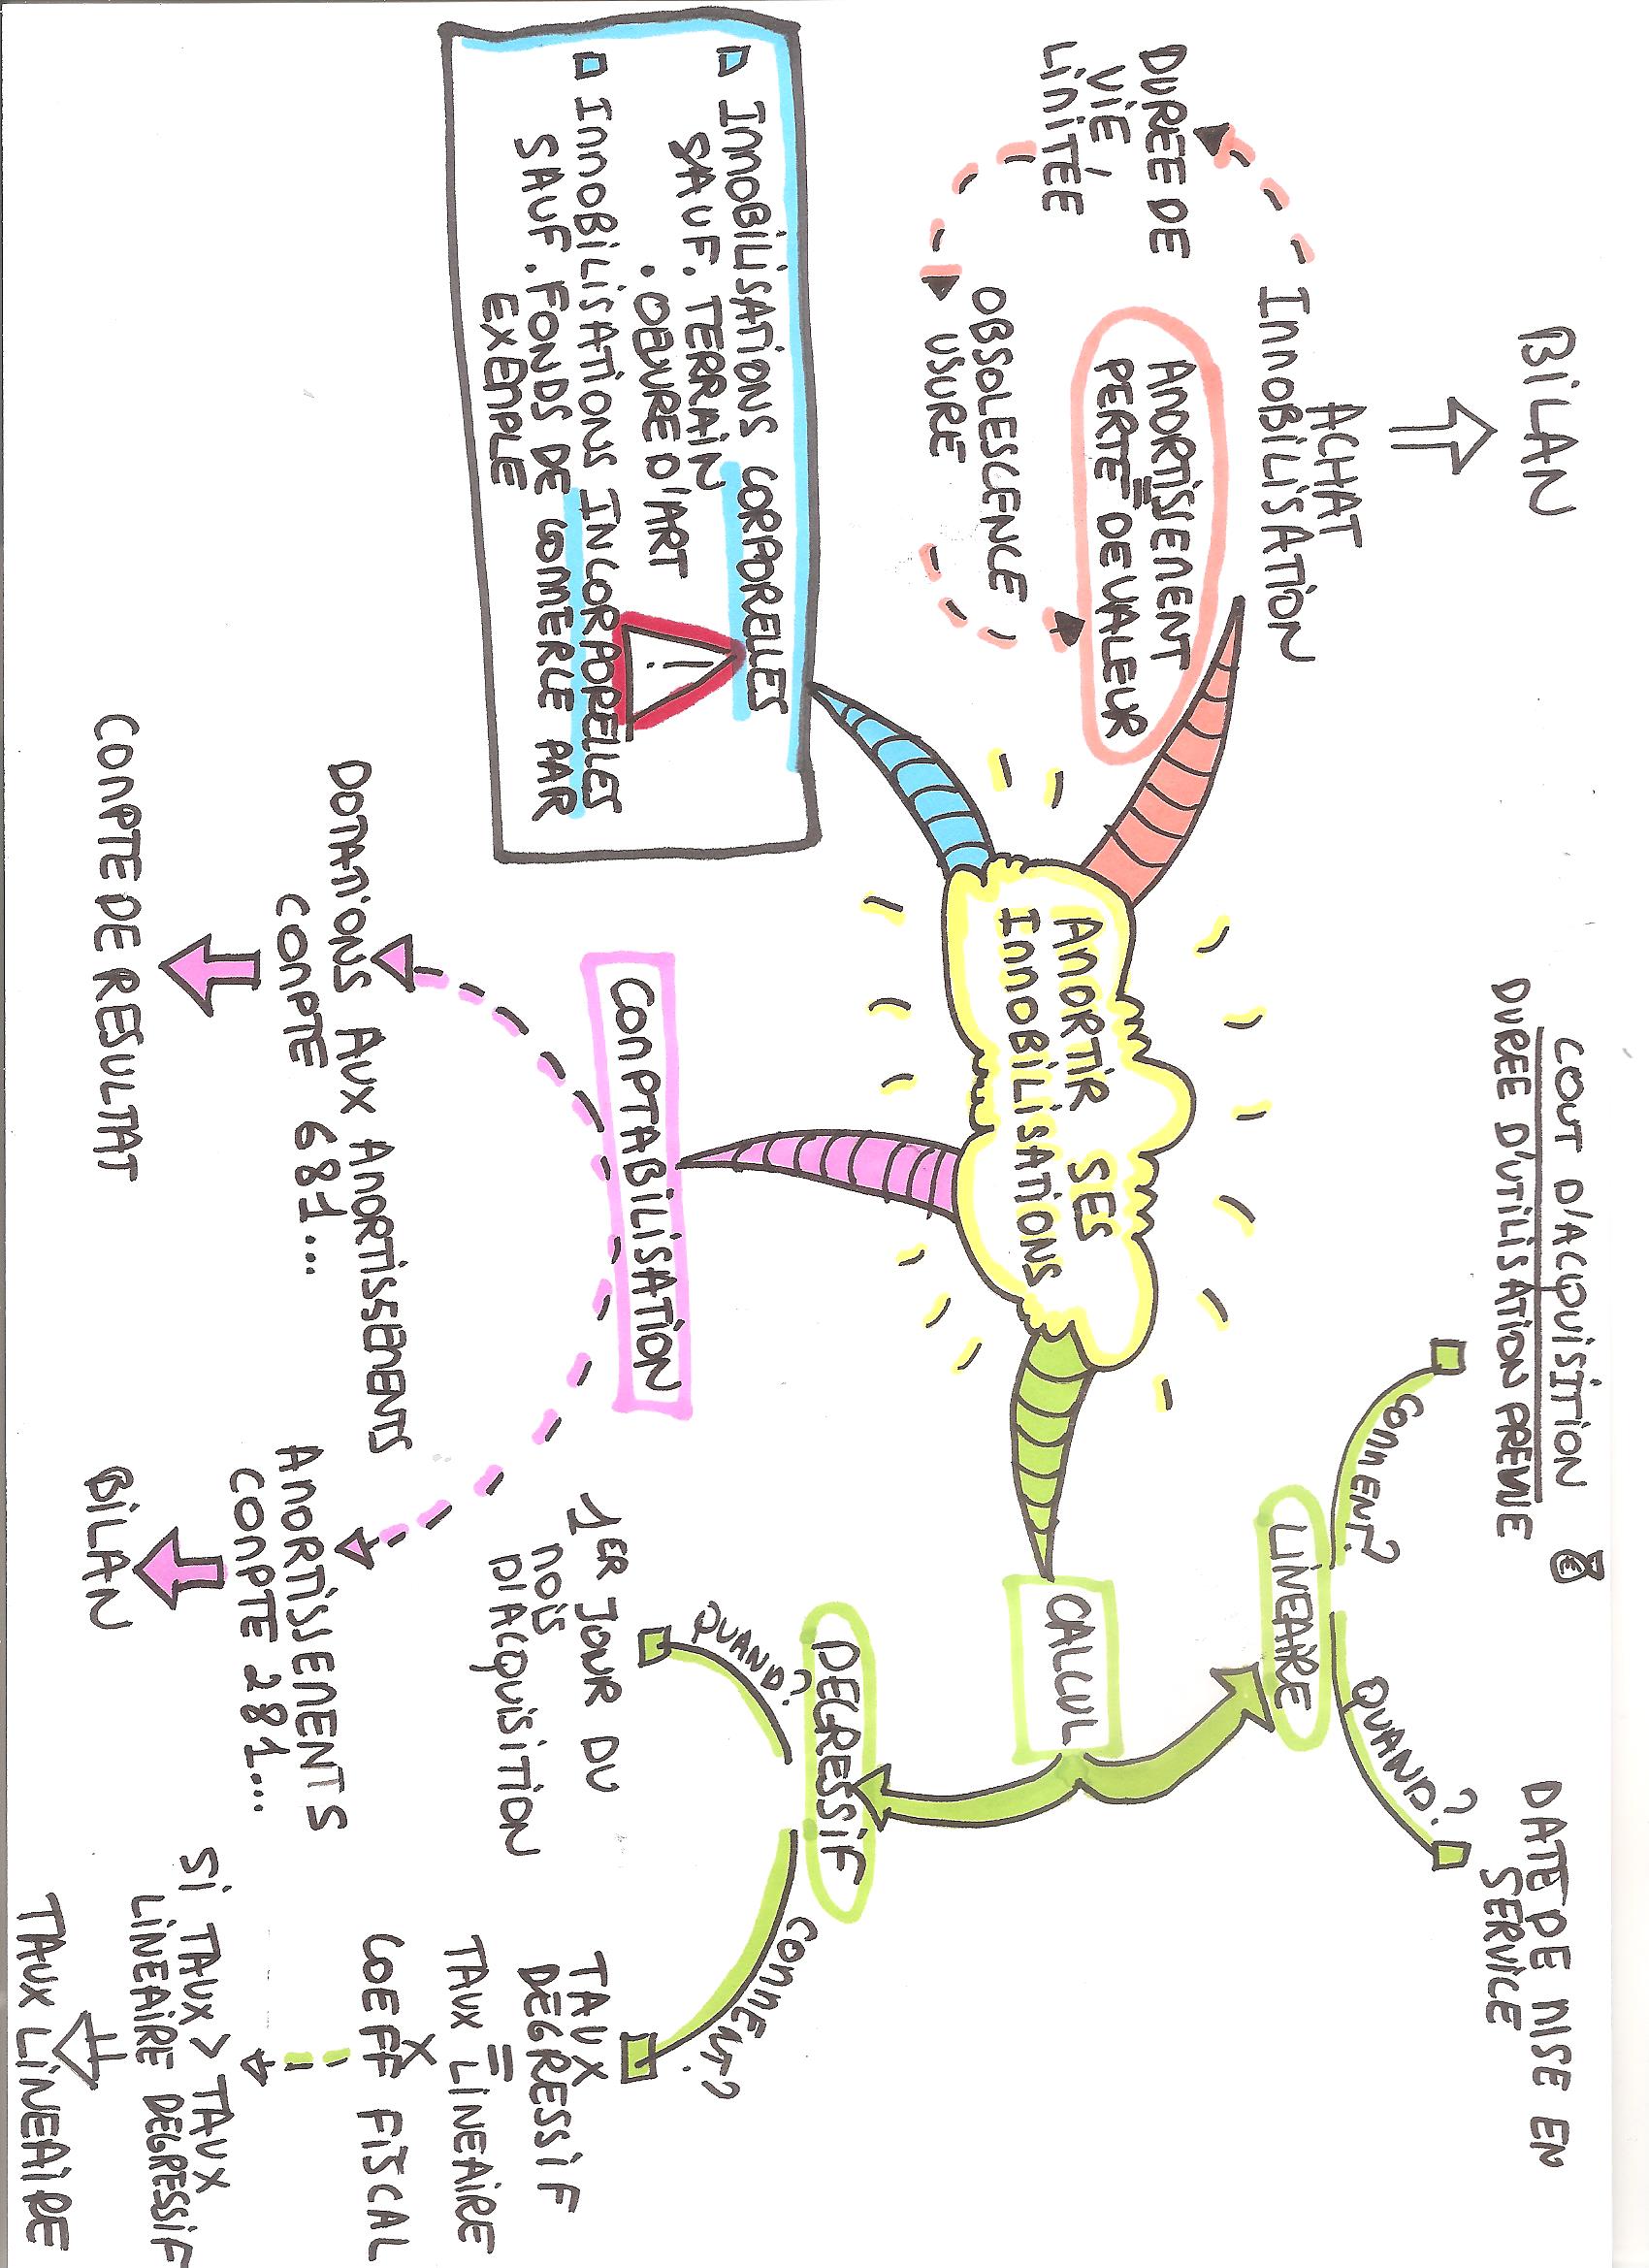 BILAN
ACHAT
IMMOBILISATION
DUREE DE
VIE
LIMITEE
OBSOLESCENCE
USURE
AMORTISSEMENT
=
PERTE DE VALEUR
IMMOBILISATIONS CORPORELLES
SAUF. TERRAIN
. OEUVRE D'ART
IMMOBILISATIONS INCORPORELLES
SAUF. FONDS DE COMMERCE PAR
EXEMPLE
!
AMORTIR SES
IMMOBILISATIONS
COMPTABILISATION
DOTATIONS AUX AMORTISSEMENTS
COMPTE 681...
COMPTE DE RESULTAT
AMORTISSEMENTS
COMPTE 281...
BILAN
CALCUL
LINEAIRE
COMMENT?
COUT D'ACQUISITION €
DUREE D'UTILISATION PREVUE
QUAND?
DATE DE MISE EN
SERVICE
DEGRESSIF
QUAND?
1ER JOUR DU
MOIS
D'ACQUISITION
COMMENT?
TAUX
DEGRESSIF
=
TAUX LINEAIRE
X
COEFF FISCAL
SI TAUX > TAUX
LINEAIRE DEGRESSIF
TAUX LINEAIRE